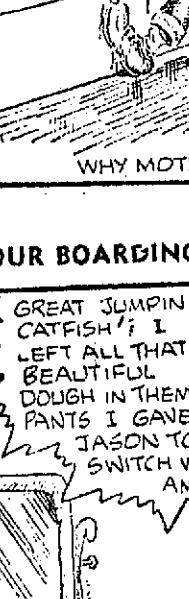 WHY MOT
OUR BOARDING
GREAT JUMPIN
CATFISH'; I
LEFT ALL THAT
BEAUTIFUL
DOUGH IN THEM
PANTS I GAVE
JASON TO
SWITCH W
AN